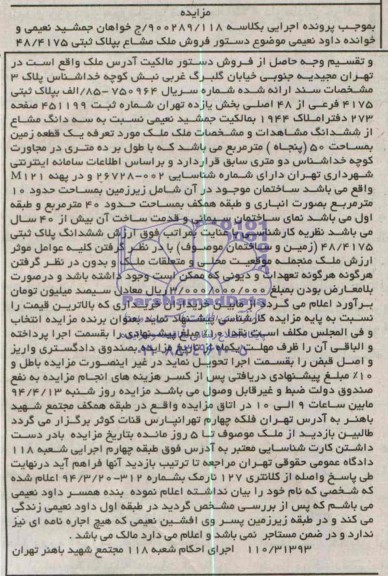 مزایده
بموجب پرونده اجرایی بکلاسه 900289/118/ج خواهان جمشید نعیمی و
خوانده داود نعیمی موضوع دستور فروش ملک مشاع بپلاک ثبتی 48/4175
و تقسیم وجه حاصل از فروش دستور مالکیت آدرس ملک واقع است در
تهران مجیدیه جنوبی خیابان گلبرگ غربی نبش کوچه خداشناس پلاک 3
مشخصات سند ارائه شده شماره سریال 750964-85/الف بپلاک ثبتی
4175 فرعی از 48 اصلی بخش یازده تهران شماره ثبت 451199 صفحه
273 دفتراملاک 1944 بمالکیت جمشید نعیمی نسبت به سه دانگ مشاع
از ششدانگ مشاهدات و مشخصات ملک ملک مورد تعرفه یک قطعه زمین
بمساحت 50 (پنجاه) مترمربع می باشد که با طول بر ده متری در مجاورت
کوچه خداشناس دو متری سابق قراردارد و براساس اطلاعات سامانه اینترنتی
شهرداری تهران دارای شماره شناسایی 002-26728 و در پهنه M121
واقع می باشد ساختمان موجود در آن شامل زیرزمین بمساحت حدود 10
مترمربع بصورت انباری و طبقه همکف بمساحت حدود 40 مترمربع و طبقه
اول می باشد نمای ساختمان سیمانی و قدمت ساخت آن بیش از 40 سال
می باشد نظریه کارشناسی با عنایت بمراتب فوق ارزش ششدانگ پلاک ثبتی
48/4175 (زمین و ساختمان موصوف) با در نظر گرفتن کلیه عوامل موثر
ارزش ملک منجمله موقعیت محلی و متعلقات ملک و بدون در نظر گرفتن
هرگونه هرگونه تعهدات و دیونی که ممکن است وجود داشته باشد و درصورت
بلامعارض بودن بمبلغ 3/000/000/000 ریال معادل سیصد میلیون تومان
برآورد اعلام می گردد خریدار خریدارانی که بالاترین قیمت را
نسبت به پایه مزایده کارشناسی پیشنهاد نماید بعنوان برنده مزایده انتخاب
و فی المجلس مکلف است نقدا 10٪ مبلغ پیشنهادی را بقسمت اجرا پرداخته
و الباقی آن را ظرف مهلت یکماه از تاریخ مزایده بصندوق دادگستری واریز
و اصل فیض را بقسمت اجرا تحویل نماید در غیر اینصورت مزایده باطل و
10٪ مبلغ پیشنهادی دریافتی پس از کسر هزینه های انجام مزایده به نفع
صندوق دولت ضبط و غیرقابل وصول می باشد مزایده روز شنبه 94/4/13
مابین ساعات 9 الی 10 در اتاق مزایده واقع در طبقه همکف مجتمع شهید
باهنر به آدرس تهران فلکه چهارم تهرانپارس قنات کوثر برگزار می گردد
طالبین بازدید از ملک موصوف تا 5 روز مانده بتاریخ مزایده بادر دست
داشتن کارت شناسایی معتبر به آدرس فوق طبقه چهارم اجرایی شعبه 118
دادگاه عمومی حقوقی تهران مراجعه تا ترتیب بازدید آنها فراهم آید درنهایت
طی پاسخ واصله از کلانتری 127 نارمک بشماره 312-94/3/20 اعلام شده
که شخصی که نام خود را بیان نداشته اعلام نموده بنده همسر داود نعیمی
می باشم که پس از بررسی مشخص گردید در طبقه اول داود نعیمی زندگی
می کند و در طبقه زیرزمین پسر وی افشین نعیمی که هیچ اجاره نامه ای نیز
ندارد و در ضمن مستاجر نمی باشد و اعلام می دارد مالک می باشد.
110/31393 اجرای احکام شعبه 118 مجتمع شهید باهنر تهران